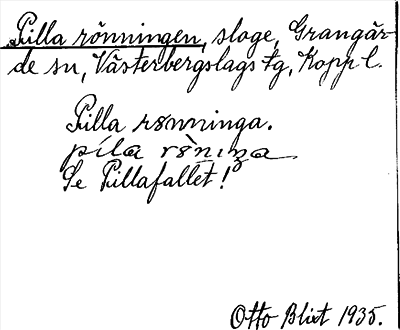 Pilla rönningen, sloge, Grangär-
de sn, Västerbergslags tg, Koppl.
Pilla rønninga.
píla rö̀nıŋa
Se Pillafallet!
Otto Blixt 1935.